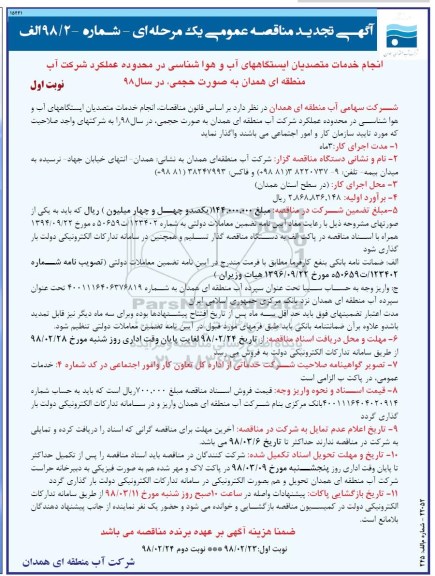 ۱۵۴۴۱
آگهی تجدید مناقصه عمومی یک مرحله ای - شماره ۹۸/۲-الف
انجام خدمات متصدیان ایستگاههای آب و هوا شناسی در محدوده عملکرد شرکت آب
منطقه ای همدان به صورت حجمی، در سال۹۸
نوبت اول
شرکت سهامی آب منطقه ای همدان در نظر دارد بر اساس قانون مناقصات، انجام خدمات متصدیان ایستگاههای آب و
هوا شناسی در محدوده عملکرد شرکت آب منطقه ای همدان به صورت حجمی، در سال۹۸را به شرکتهای واجد صلاحیت
که مورد تایید سازمان کار و امور اجتماعی می باشند واگذار نماید
۱- مدت اجرای کار:۳ماه
۲- نام و نشانی دستگاه مناقصه گزار: شرکت آب منطقه‌ای همدان به نشانی: همدان- انتهای خیابان جهاد- نرسیده به
میدان بیمه- تلفن: ۹- ۳۸۲۲۰۷۳۷ (۰۸۱) و فاکس: ۳۸۲۴۷۹۹۲ (۰۸۱)
۳- محل اجرای کار: (در سطح استان همدان)
۴- برآورد اولیه: ۲،۸۶۸،۸۳۶،۱۴۸ ریال
۵-مبلغ تضمین شرکت در مناقصه: مبلغ ۱۴۴،۰۰۰،۰۰۰(یکصدو چهل و چهار میلیون ) ریال که باید به یکی از
صورتهای مشروحه ذیل با رعایت مفاد آیین نامه تضمین معاملات دولتی به شماره ۱۲۳۴۰۲/ت۵۰۶۵۹ ه مورخ ۱۳۹۴/۰۹/۲۲
همراه با اسناد مناقصه در پاکت الف به دستگاه مناقصه گذار تسلیم و همچنین در سامانه تدارکات الکترونیکی دولت بار
گذاری شود
الف: ضمانت نامه بانکی بنفع کارفرما مطابق با فرمت مندرج در آیین نامه تضمین معاملات دولتی (تصویب نامه شماره
۱۲۳۴۰۲/ت۵۰۶۵۹ه مورخ ۱۳۹۶/۰۹/۲۲ هیات وزیران )
ج: واریز وجه به حساب سیبا تحت عنوان سپرده آب منطقه ای همدان به شماره ۴۰۰۱۱۱۶۴۰۶۳۷۶۸۱۹ تحت عنوان
سپرده آب منطقه ای همدان نزد بانک مرکزی جمهوری اسلامی ایران
مدت اعتبار تضمینهای فوق باید حد اقل سه ماه پس از تاریخ افتتاح پیشنهادها بوده وبرای سه ماه دیگر نیز قابل تمدید
باشدو علاوه برآن ضمانتنامه بانکی باید طبق فرمهای مورد قبول در آیین نامه تضمین معاملات دولتی تنظیم شود.
۶- مهلت و محل دریافت اسناد مناقصه: از تاریخ ۹۸/۰۲/۲۴ لغایت پایان وقت اداری روز شنبه مورخ ۹۸/۰۲/۲۸
از طریق سامانه تدارکات الکترونیکی دولت به فروش می رسد
۷- تصویر گواهینامه صلاحیت شرکت خدماتی از اداره کل تعاون کار وامور اجتماعی در کد شماره ۴: خدمات
عمومی، در پاکت ب الزامی است
۸- قیمت اسناد و نحوه واریز وجه: قیمت فروش اسناد مناقصه مبلغ ۷۰۰،۰۰۰ریال است که باید به حساب شماره
۴۰۰۱۱۱۶۴۰۴۰۲۰۹۱۴بانک مرکزی بنام شرکت آب منطقه ای همدان واریز و در سامانه تدارکات الکترونیکی دولت بار
گذاری گردد
۹- تاریخ اعلام عدم تمایل به شرکت در مناقصه: آخرین مهلت برای مناقصه گرانی که اسناد را دریافت کرده و تمایلی
به شرکت در مناقصه ندارند حداکثر تا تاریخ ۹۸/۰۳/۶ می باشد.
۱۰- تاریخ و مهلت تحویل اسناد تکمیل شده: شرکت کنندگان در مناقصه باید اسناد مناقصه را پس از تکمیل حداکثر
تا پایان وقت اداری روز پنجشنبه مورخ ۹۸/۰۳/۰۹ در پاکت لاک و مهر شده هم به صورت فیزیکی به دبیرخانه حراست
شرکت آب منطقه ای همدان تحویل و هم بصورت الکترونیکی در سامانه تدارکات الکترونیکی دولت بار گذاری گردد
۱۱- تاریخ بازگشایی پاکات: پیشنهادات واصله در ساعت ۱۰صبح روز شنبه مورخ ۹۸/۰۳/۱۱ از طریق سامانه تدارکات
الکترونیکی دولت در کمیسیون مناقصه بازگشایی و خوانده می شود و حضور یک نفر نماینده از جانب پیشنهاد دهندگان
بلامانع است.
ضمنا هزینه آگهی بر عهده برنده مناقصه می باشد
نوبت اول:۹۸/۰۲/۲۳ *** نوبت دوم ۹۸/۰۲/۲۴
شرکت آب منطقه ای همدان